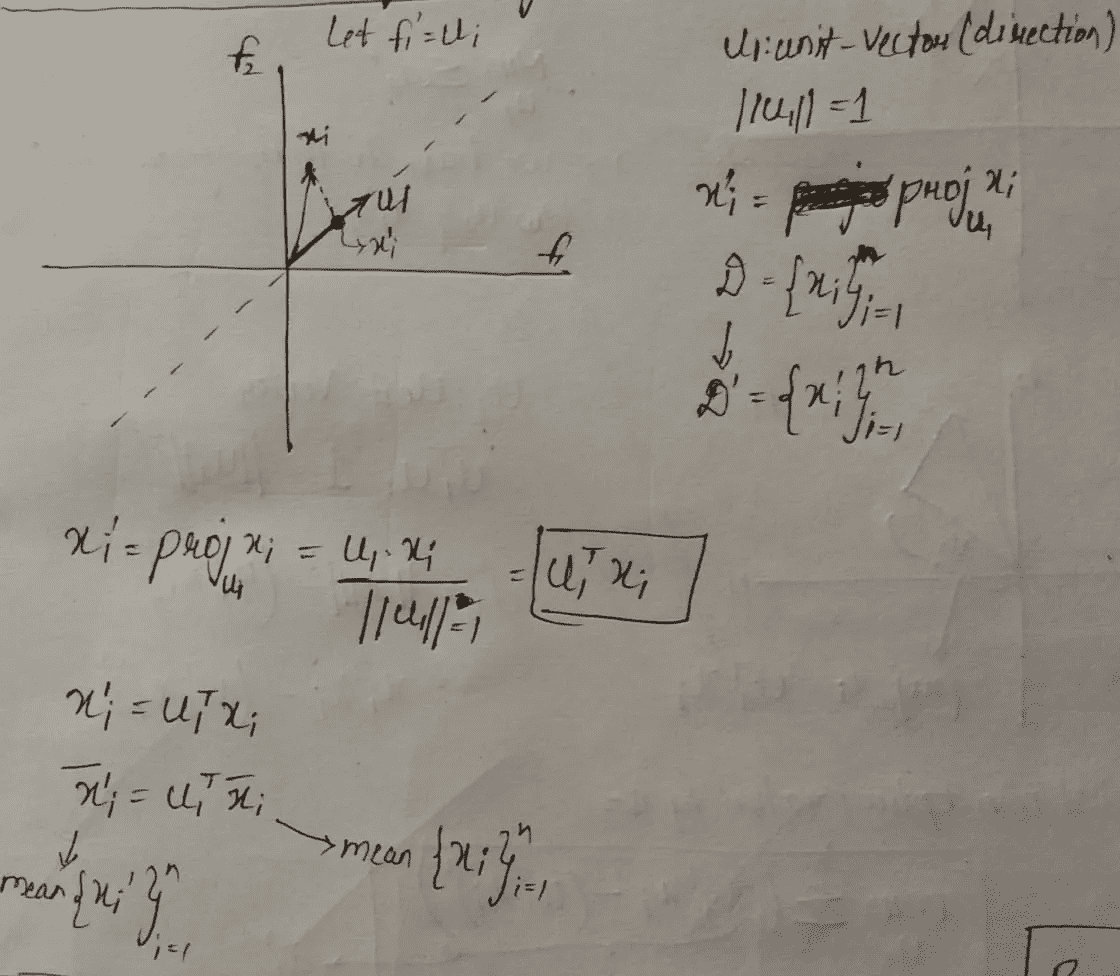 Let f₁' = uᵢ
f₂
xᵢ
u1
xᵢ'
f₁
u₁: unit-vector (direction)
||u₁|| = 1
xᵢ' = proj_u₁ xᵢ
D = {xᵢ}ⁿᵢ₌₁
↓
D' = {xᵢ'}ⁿᵢ₌₁
xᵢ' = proj_u₁ xᵢ = u₁·xᵢ / ||u₁||=1 = u₁ᵀ xᵢ
xᵢ' = u₁ᵀ xᵢ
x̄ᵢ' = u₁ᵀ x̄ᵢ
→ mean {xᵢ}ⁿᵢ₌₁
mean {xᵢ'}ⁿᵢ₌₁